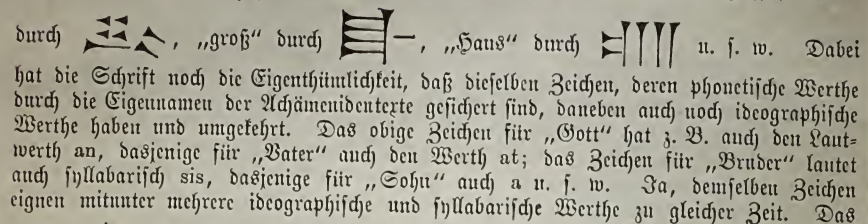 durch 𒆳, „groß“ durch 𒃲, „Haus“ durch 𒂍 u. s. w. Dabei
hat die Schrift noch die Eigenthümlichkeit, daß dieselben Zeichen, deren phonetische Werthe
durch die Eigennamen der Achämenidentexte gesichert sind, daneben auch noch ideographische
Werthe haben und umgekehrt. Das obige Zeichen für „Gott“ hat z. B. auch den Laut-
werth an, dasjenige für „Vater“ auch den Werth at; das Zeichen für „Bruder“ lautet
auch syllabarisch sis, dasjenige für „Sohn“ auch a u. s. w. Ja, demselben Zeichen
eignen mitunter mehrere ideographische und syllabarische Werthe zu gleicher Zeit. Das